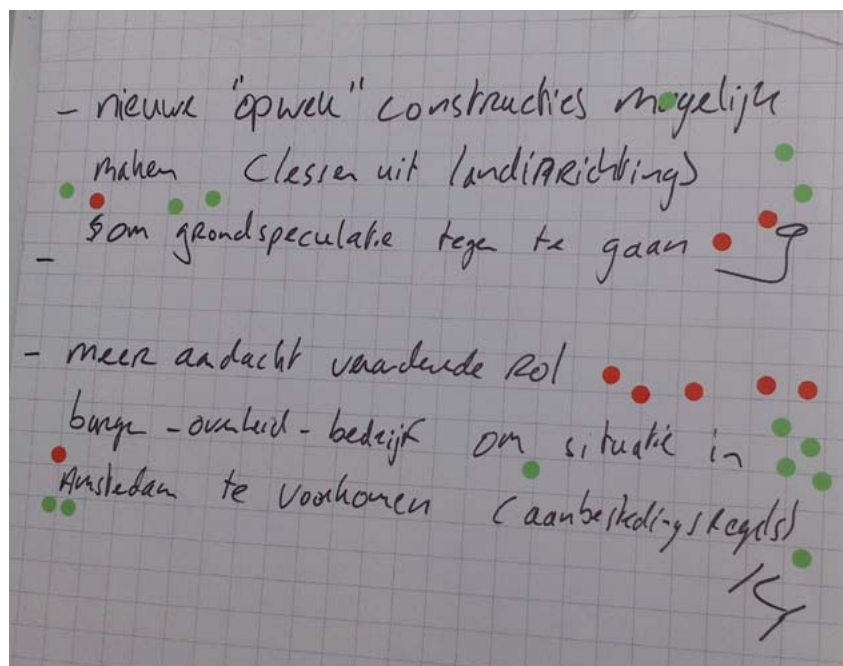 - nieuwe "opwek" constructies mogelijk
maken (lessen uit landinrichting)
om grondspeculatie tegen te gaan
-
- meer aandacht veranderende rol
burger - overheid - bedrijf om situatie in
Amsterdam te voorkomen (aanbestedingsregels)